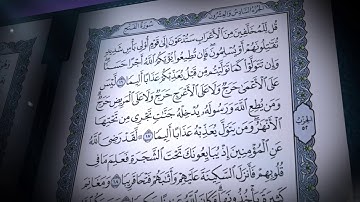 سُورَةُ الفَتْحِ
الجُزْءُ السَّادِسُ وَالعِشْرُونَ
قُل لِّلْمُخَلَّفِينَ مِنَ الْأَعْرَابِ سَتُدْعَوْنَ إِلَىٰ قَوْمٍ أُولِي بَأْسٍ شَدِيدٍ
تُقَاتِلُونَهُمْ أَوْ يُسْلِمُونَ فَإِن تُطِيعُوا يُؤْتِكُمُ اللَّهُ أَجْرًا حَسَنًا
وَإِن تَتَوَلَّوْا كَمَا تَوَلَّيْتُم مِّن قَبْلُ يُعَذِّبْكُمْ عَذَابًا أَلِيمًا ١٦ لَّيْسَ
عَلَى الْأَعْمَىٰ حَرَجٌ وَلَا عَلَى الْأَعْرَجِ حَرَجٌ وَلَا عَلَى الْمَرِيضِ حَرَجٌ
وَمَن يُطِعِ اللَّهَ وَرَسُولَهُ يُدْخِلْهُ جَنَّاتٍ تَجْرِي مِن تَحْتِهَا
الْأَنْهَارُ وَمَن يَتَوَلَّ يُعَذِّبْهُ عَذَابًا أَلِيمًا ١٧ لَّقَدْ رَضِيَ اللَّهُ
عَنِ الْمُؤْمِنِينَ إِذْ يُبَايِعُونَكَ تَحْتَ الشَّجَرَةِ فَعَلِمَ مَا فِي
قُلُوبِهِمْ فَأَنزَلَ السَّكِينَةَ عَلَيْهِمْ وَأَثَابَهُمْ فَتْحًا قَرِيبًا ١٨ وَمَغَانِمَ
كَثِيرَةً يَأْخُذُونَهَا